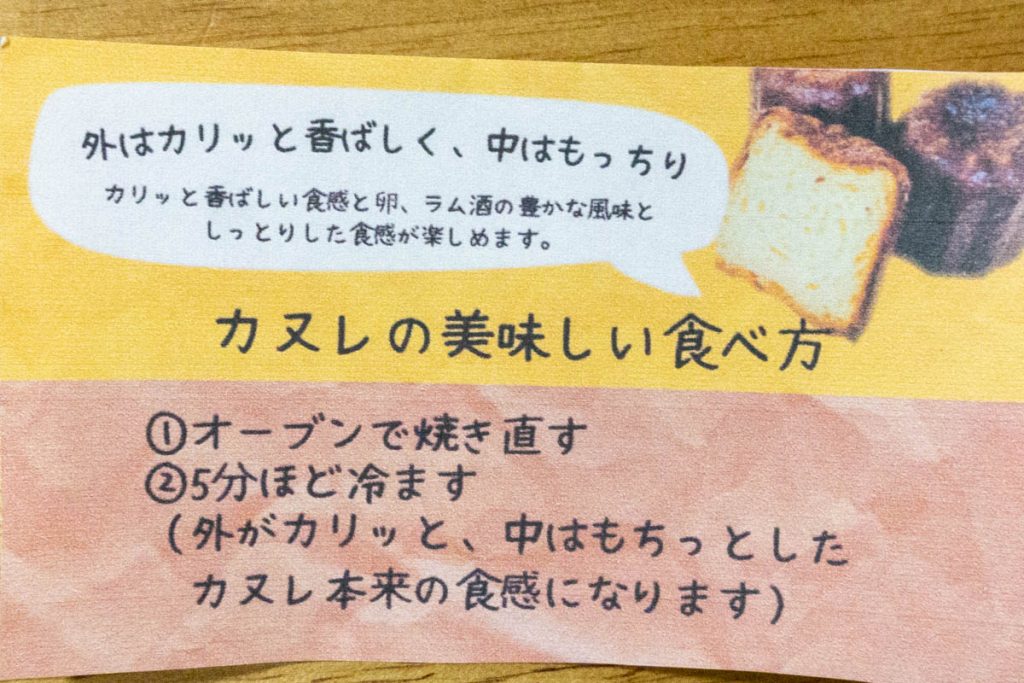 外はカリッと香ばしく、中はもっちり
カリッと香ばしい食感と卵、ラム酒の豊かな風味と
しっとりした食感が楽しめます。
カヌレの美味しい食べ方
①オーブンで焼き直す
②5分ほど冷ます
(外がカリッと、中はもちっとした
カヌレ本来の食感になります)